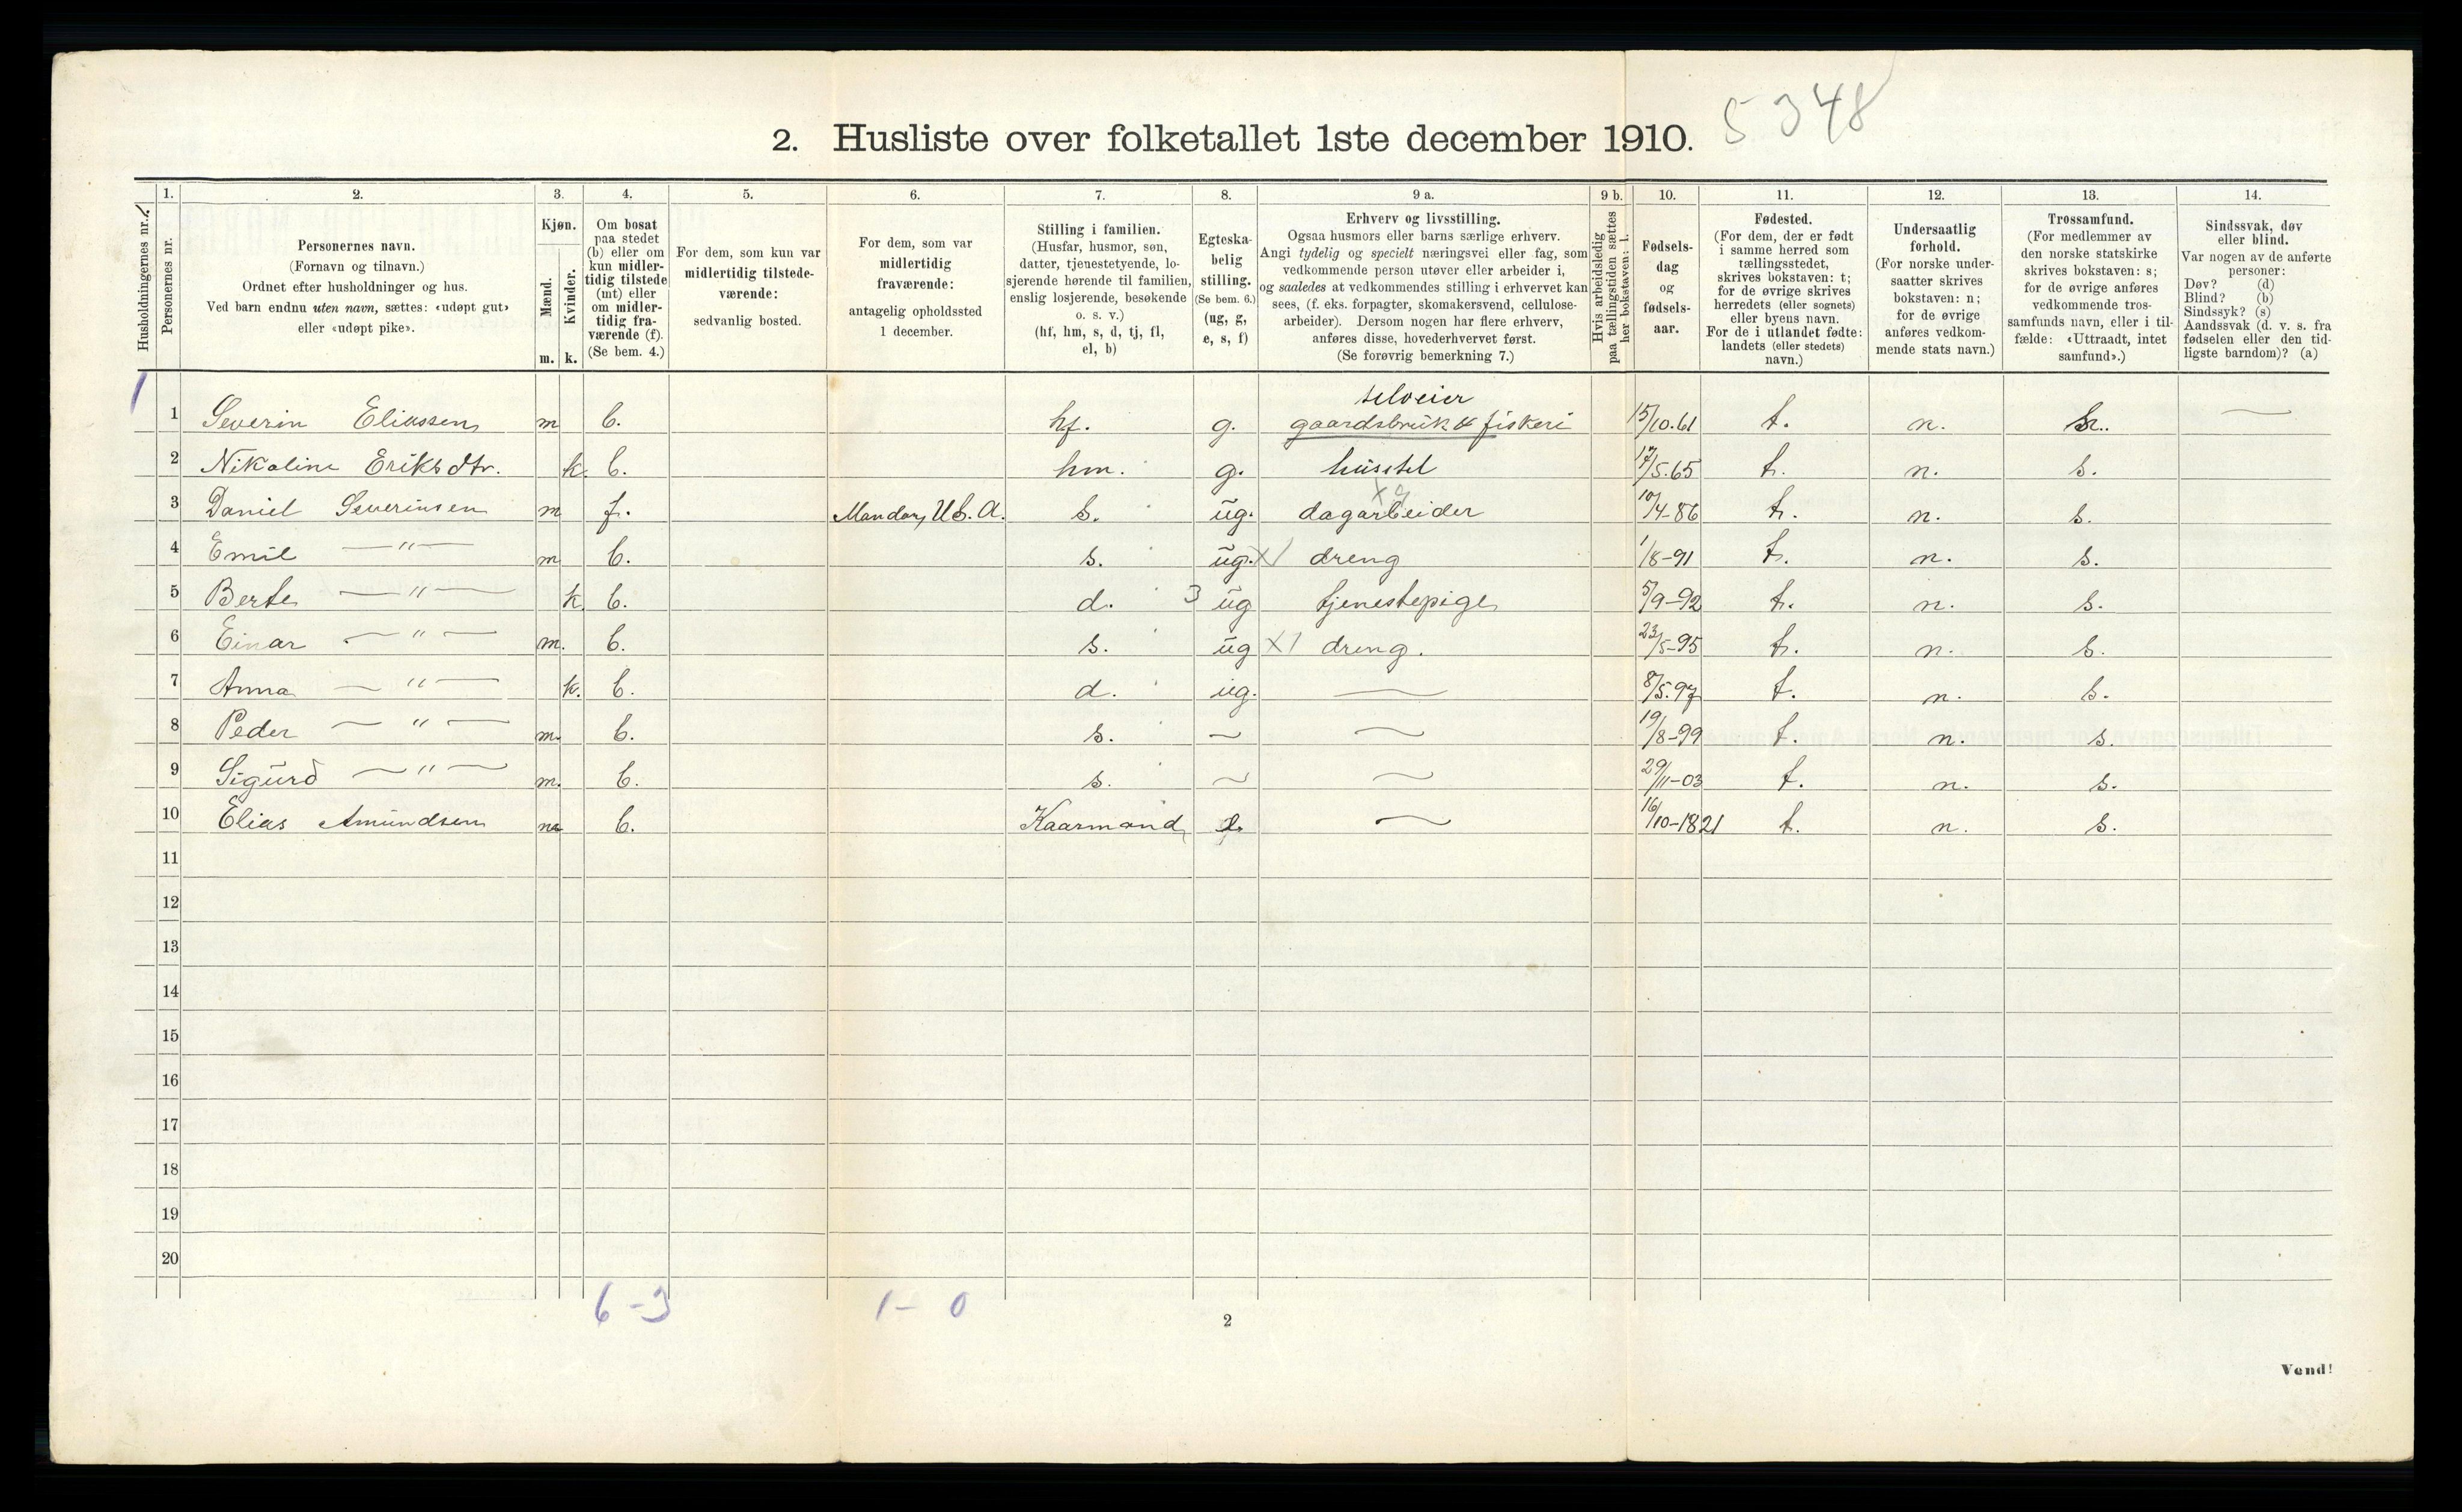 5348
2. Husliste over folketallet 1ste december 1910.
Husholdningernes nr.
1. Personernes nr.
2. Personernes navn. (Fornavn og tilnavn.) Ordnet efter husholdninger og hus. Ved barn endnu uten navn, sættes: «udøpt gut» eller «udøpt pike».
3. Kjøn. Mænd. m. Kvinder. k.
4. Om bosat paa stedet (b) eller om kun midlertidig tilstede (mt) eller om midlertidig fraværende (f). (Se bem. 4.)
5. For dem, som kun var midlertidig tilstedeværende: sedvanlig bosted.
6. For dem, som var midlertidig fraværende: antagelig opholdssted 1 december.
7. Stilling i familien. (Husfar, husmor, søn, datter, tjenestetyende, losjerende hørende til familien, enslig losjerende, besøkende o. s. v.) (hf, hm, s, d, tj, fl, el, b)
8. Egteskabelig stilling. (Se bem. 6.) (ug, g, e, s, f)
9 a. Erhverv og livsstilling. Ogsaa husmors eller barns særlige erhverv. Angi tydelig og specielt næringsvei eller fag, som vedkommende person utøver eller arbeider i, og saaledes at vedkommendes stilling i erhvervet kan sees, (f. eks. forpagter, skomakersvend, cellulosearbeider). Dersom nogen har flere erhverv, anføres disse, hovederhvervet først. (Se forøvrig bemerkning 7.)
9 b. Hvis arbeidsledig paa tællingstiden sættes her bokstaven: l.
10. Fødselsdag og fødselsaar.
11. Fødested. (For dem, der er født i samme herred som tællingsstedet, skrives bokstaven: t; for de øvrige skrives herredets (eller sognets) eller byens navn. For de i utlandet fødte: landets (eller stedets) navn.)
12. Undersaatlig forhold. (For norske undersaatter skrives bokstaven: n; for de øvrige anføres vedkommende stats navn.)
13. Trossamfund. (For medlemmer av den norske statskirke skrives bokstaven: s; for de øvrige anføres vedkommende trossamfunds navn, eller i tilfælde: «Uttraadt, intet samfund».)
14. Sindssvak, døv eller blind. Var nogen av de anførte personer: Døv? (d) Blind? (b) Sindssyk? (s) Aandssvak (d. v. s. fra fødselen eller den tidligste barndom)? (a)
selveier
1 1 Severin Eliassen m b. hf. g. gaardsbruk & fiskeri 15/10.61 t. n. s. —
2 Nikoline Eriksdtr. k. b. hm. g. husstel 17/5.65 t. n. s.
3 Daniel Severinsen m f. Mandan, U.S.A. s. ug. dagarbeider 10/4-86 t. n. s.
4 Emil —"— m b. s. ug. X1 dreng 1/8-91 t. n. s.
5 Berte —"— k. b. d. 3 ug tjenestepige 5/9-92 t. n. s.
6 Einar —"— m. b. s. ug X1 dreng. 23/5-95 t. n. s.
7 Anna —"— k. b. d. ug. — 8/5.97 t. n. s.
8 Peder —"— m. b. s. — — 19/8-99 t. n. s.
9 Sigurd —"— m. b. s. — — 29/11-03 t. n. s.
10 Elias Amundsen m b. Kaarmand — 16/10-1821 t. n. s.
11
12
13
14
15
16
17
18
19
20
6-3 1-0
2
Vend!